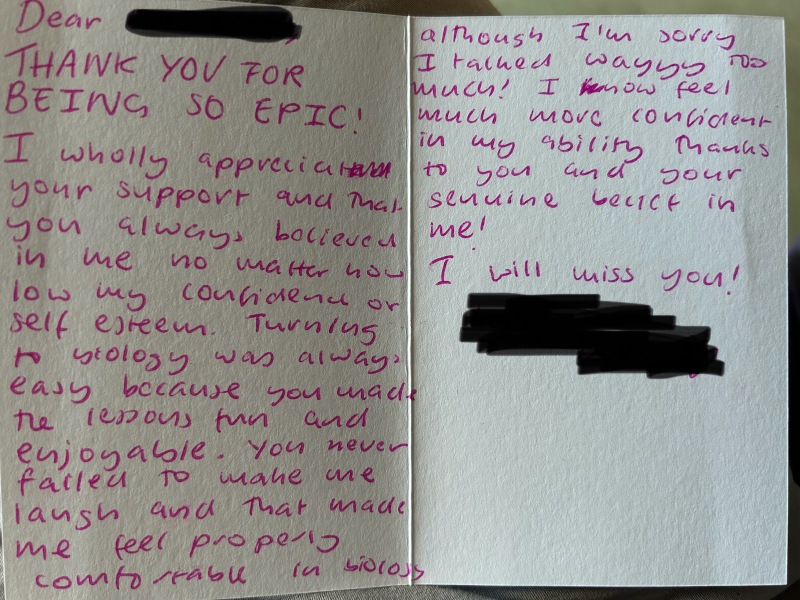 Dear
THANK YOU FOR
BEING SO EPIC!
I wholly appreciate
your support and that
you always believed
in me no matter how
low my confidence or
self esteem. Turning
to biology was always
easy because you made
the lessons fun and
enjoyable. You never
failed to make me
laugh and that made
me feel properly
comfortable in biology
although I'm sorry
I talked wayyy too
much! I know feel
much more confident
in my ability thanks
to you and your
genuine belief in
me!
I will miss you!